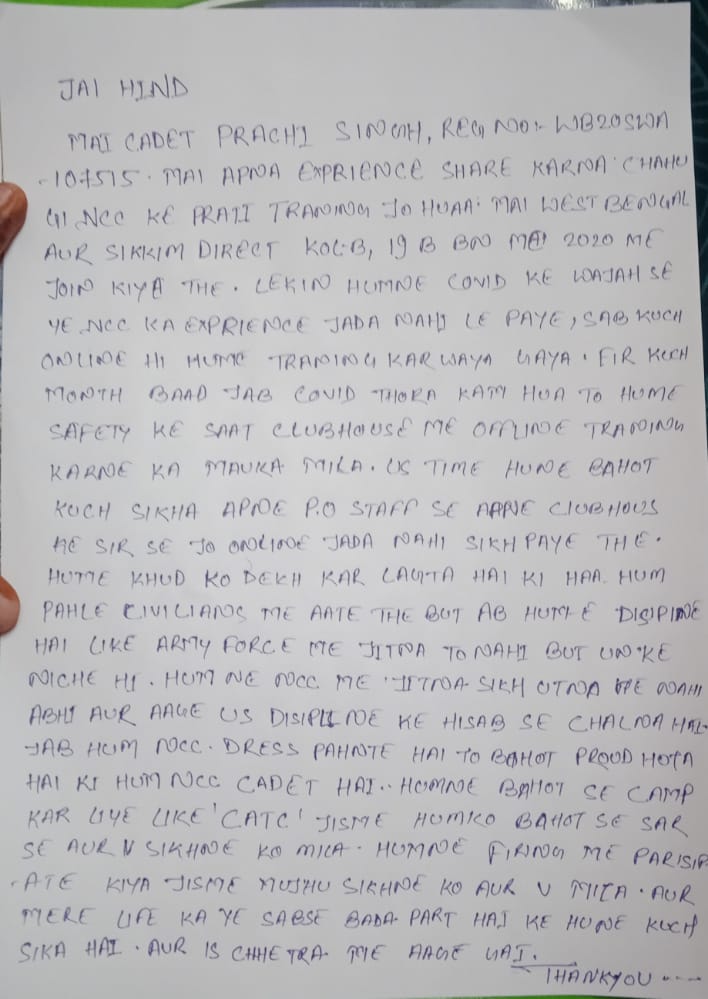 JAI HIND
MAI CADET PRACHI SINGH, REG NO:- WB20SWA
-107515. MAI APNA EXPRIENCE SHARE KARNA CHAHU
GI NCC KE PRATI TRANING JO HUAA. MAI WEST BENGAL
AUR SIKKIM DIRECT KOL-B, 19 B BN MEI 2020 ME
JOIN KIYE THE. LEKIN HUMNE COVID KE WAJAH SE
YE NCC KA EXPRIENCE JADA NAHI LE PAYE, SAB KUCH
ONLINE HI HUME TRANING KARWAYA GAYA. FIR KUCH
MONTH BAAD JAB COVID THORA KAM HUA TO HUME
SAFETY KE SAAT CLUBHOUSE ME OFFLINE TRANING
KARNE KA MAUKA MILA. US TIME HUNE BAHOT
KUCH SIKHA APNE P.O STAFF SE APNE CLUBHOUS
KE SIR SE JO ONLINE JADA NAHI SIKH PAYE THE.
HUME KHUD KO DEKH KAR LAGTA HAI KI HAA HUM
PAHLE CIVILIANS ME AATE THE BUT AB HUME DISIPINE
HAI LIKE ARMY FORCE ME JITNA TO NAHI BUT UNKE
NICHE HI. HUM NE NCC ME JITNA SIKH UTNA HE NAHI
ABHI AUR AAGE US DISIPLINE KE HISAB SE CHALNA HAI-
JAB HUM NCC. DRESS PAHNTE HAI TO BAHOT PROUD HOTA
HAI KI HUM NCC CADET HAI.. HUMNE BAHOT SE CAMP
KAR LIYE LIKE 'CATC' JISME HUMKO BAHOT SE SAR
SE AUR V SIKHNE KO MILA. HUMNE FIRING ME PARISIP
-ATE KIYA JISME MUJHU SIKHNE KO AUR V MILA. AUR
MERE LIFE KA YE SABSE BADA PART HAI KE HUNE KUCH
SIKA HAI. AUR IS CHHETRA ME AAGE
THANKYOU ....